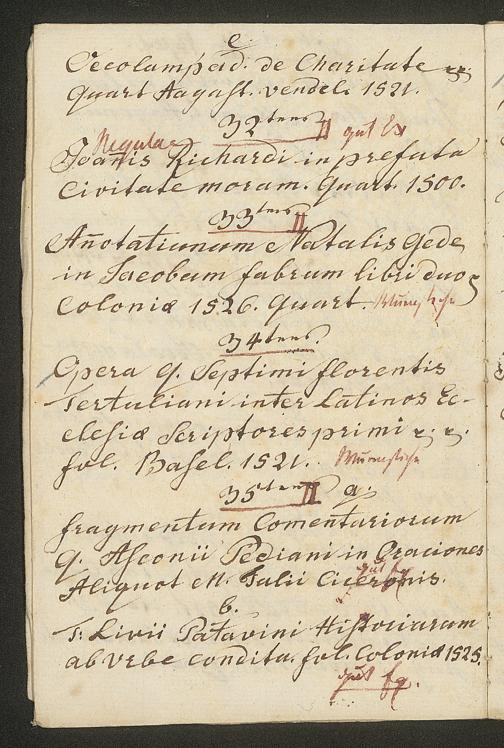 e.
Oecolampad. de Charitate
Quart August. vendel. 1521.
32tens II gut Ex
Regulae
Joanis Richardi in prefata
Civitate moram. Quart. 1500.
33tens II
Añotatiunum Natalis Gede
in Jacobum fabrum libri duo
Coloniæ 1526. Quart.
34tens.
Opera Q. Septimi florentis
Tertuliani inter Latinos Ec-
clesiæ Scriptores primi
fol. Basel. 1521.
35tens II a.
fragmentum Comentariorum
Q. Asconii Pediani in Oraciones
Aliquot M. Tulii Ciceronis.
gut
b.
T: Livii Patavini Historiarum
ab Vrbe condita. fol. Coloniæ 1525.
gut